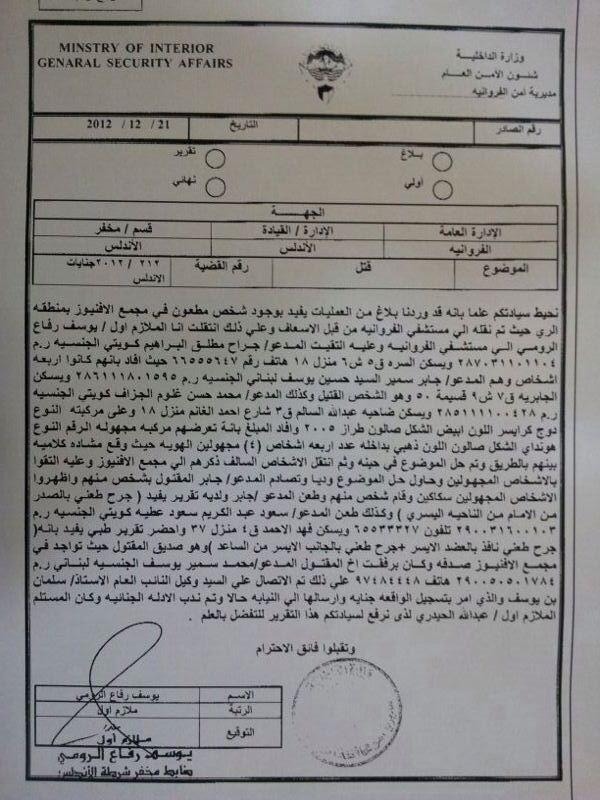 MINSTRY OF INTERIOR
GENARAL SECURITY AFFAIRS
وزارة الداخلية
شئون الأمن العام
مديرية أمن الفروانيه
رقم الصادر
التاريخ
21 / 12 / 2012
بلاغ
تقرير
أولي
نهائي
الجهـــــــة
الإدارة العامة
الإدارة / القيادة
قسم / مخفر
الفروانيه
الأندلس
الأندلس
الموضوع
قتل
رقم القضية
٢١٢ / ٢٠١٢جنايات
الاندلس
نحيط سيادتكم علما بانه قد وردنا بلاغ من العمليات يفيد بوجود شخص مطعون في مجمع الافنيوز بمنطقه
الري حيث تم نقله الي مستشفي الفروانيه من قبل الاسعاف وعلي ذلك انتقلت انا الملازم اول / يوسف رفاع
الرومي الي مستشفي الفروانيه وعليه التقيت المدعو/ جراح مطلق البراهيم كويتي الجنسيه ر.م
٢٨٧٠٣١١٠١١٠٤ ويسكن السره ق٥ ش٦ منزل ١٨ هاتف رقم ٦٦٥٥٥٦٤٧ حيث افاد بانهم كانوا اربعه
اشخاص وهم المدعو/ جابر سمير السيد حسين يوسف لبناني الجنسيه ر.م ٢٨٦١١١٨٠١٥٩٥ ويسكن
الجابريه ق٧ ش٩ قسيمة ٥٠ وهو الشخص القتيل وكذلك المدعو/ محمد حسن غلوم الجزاف كويتي الجنسيه
ر.م ٢٨٥١١١١٠٠٤٢٨ ويسكن ضاحيه عبدالله السالم ق٣ شارع احمد الغانم منزل ١٨ وعلى مركبته النوع
دوج كرايسر اللون ابيض الشكل صالون طراز ٢٠٠٥ وافاد المبلغ بانه تعرضهم مركبه مجهوله الرقم النوع
هونداي الشكل صالون اللون ذهبي بداخله عدد اربعه اشخاص (٤) مجهولين الهويه حيث وقع مشاده كلاميه
بينهم بالطريق وتم حل الموضوع في حينه وثم انتقل الاشخاص السالف ذكرهم الي مجمع الافنيوز وعليه التقوا
بالاشخاص المجهولين وحاول حل الموضوع وديا وتصادم المدعو/ جابر المقتول بشخص منهم واظهروا
الاشخاص المجهولين سكاكين وقام شخص منهم وطعن المدعو /جابر ولديه تقرير يفيد ( جرح طعني بالصدر
من الامام من الناحيه اليسري ) وكذلك طعن المدعو/ سعود عبد الكريم سعود عطيه كويتي الجنسيه ر.م
٢٩٠٠٣١٦٠٠١٠٣ تلفون ٦٥٥٣٣٣٢٧ ويسكن فهد الاحمد ق٤ منزل ٣٧ واحضر تقرير طبي يفيد بانه(
جرح طعني نافذ بالعضد الايسر +جرح طعني بالجانب الايسر من الساعد )وهو صديق المقتول حيث تواجد في
مجمع الافنيوز صدفه وكان برفقت اخ المقتول المدعو/محمد سمير يوسف الجنسيه لبناني ر.م
٢٩٠٠٥٠٥٠١٧٨٤ هاتف ٩٧٤٨٤٤٤٨ علي ذلك تم الاتصال علي السيد وكيل النائب العام الاستاذ/ سلمان
بن يوسف والذي امر بتسجيل الواقعه جنايه وارسالها الي النيابه حالا وتم ندب الادله الجنائيه وكان المستلم
الملازم اول / عبدالله الحيدري لذى نرفع لسيادتكم هذا التقرير للتفضل بالعلم .
وتقبلوا فائق الاحترام
الاسم
يوسف رفاع الرومي
الرتبة
ملازم اول
التوقيع
ملازم أول
يوسف رفاع الرومي
ضابط مخفر شرطة الأندلس